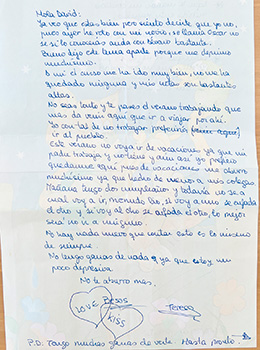 Hola David:
Ya veo que estás bien pero siento decirte que yo no,
pues ayer he roto con mi novio, se llama Oscar no
se si lo conocías anda con bastante.
Bueno dejo este tema aparte porque me deprimo
muchísimo.
A mi el curso me ha ido muy bien, no me ha
quedado ninguna y mis notas son bastantes
altas.
No seas tonto y te pases el verano trabajando que
mas da venir aquí que ir a viajar por ahí.
Yo con tal de no trabajar prefiriría
ir al pueblo.
Este verano no voy a ir de vacaciones ya que mi
padre trabaja y no tiene y aún así yo prefiero
quedarme aquí pues de vacaciones me aburro
muchísimo ya que hecho de menos a mis colegas.
Mañana tengo dos cumpleaños y todavía no se a
cual voy a ir, menudo lío, si voy a uno se enfada
el otro y si voy al otro se enfada el otro, lo mejor
será no ir a ninguno.
No hay nada nuevo que contar esto es lo mismo
de siempre.
No tengo ganas de nada ya que estoy un
poco depresiva.
No te aburro más.
LOVE BESOS
KISS
Teresa
P.D. Tengo muchas ganas de verte. Hasta pronto.